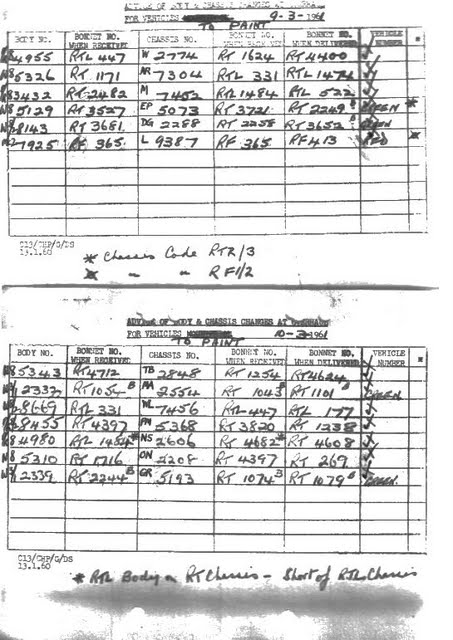 ADVICE OF BODY & CHASSIS CHANGES AT OVERHAUL
FOR VEHICLES 9-3-1961
TO PAINT
BODY NO. BONNET NO. WHEN RECEIVED CHASSIS NO. BONNET NO. WHEN RECEIVED BONNET NO. WHEN DELIVERED VEHICLE NUMBER *
4955 RTL 447 W 2774 RT 1624 RT 4400 ✓
5326 RT 1171 AR 7304 RTL 331 RTL 1474 ✓
3432 RT 2482 M 7452 RTL 1484 RTL 522 ✓
5129 RT 3527 EP 5073 RT 3721 RT 2249 B GREEN *
8143 RT 3681 DG 2288 RT 2258 RT 3652 B GREEN
7925 RF 365 L 9387 RF 365 RF 413 RED *
C13/CHP/G/DS
13.1.60
* Chassis Code RTR/3
* " " RF1/2
ADVICE OF BODY & CHASSIS CHANGES AT OVERHAUL
FOR VEHICLES 10-3-1961
TO PAINT
BODY NO. BONNET NO. WHEN RECEIVED CHASSIS NO. BONNET NO. WHEN RECEIVED BONNET NO. WHEN DELIVERED VEHICLE NUMBER *
5343 RT 4712 TB 2848 RT 1254 RT 4624 ✓
2332 RT 1054 B AA 2554 RT 1043 B RT 1101 B GREEN
8669 RTL 331 WL 7456 RTL 447 RTL 177 ✓
8455 RT 4397 PN 5368 RT 3820 RT 1238 ✓
4980 RTL 1484 * NS 2606 RT 4682 * RT 4608 ✓
5310 RT 1716 ON 2208 RT 4397 RT 269 ✓
2339 RT 2244 B GR 5193 RT 1074 B RT 1079 B GREEN
C13/CHP/G/DS
13.1.60
* RTL Body on RT Chassis - Short of RTL Chassis